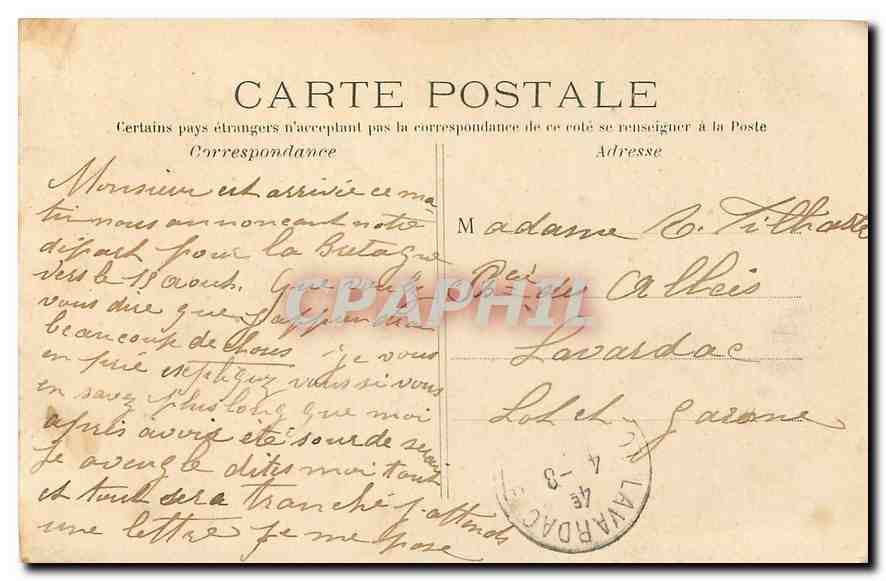 CARTE POSTALE
Certains pays étrangers n'acceptant pas la correspondance de ce coté se renseigner à la Poste
Correspondance
Monsieur est arrivée ce ma-
tin nous annonçant notre
départ pour la Bretagne
vers le 15 aout. Que vous
vous dire que j'apprendra
beaucoup de choses je vous
en prie expliquez vous si vous
en savez plus long que moi
après avoir été sourde serai
je aveugle dites moi tout
et tout sera tranché j'attends
une lettre je me pose
Adresse
Madame Tilhaste
du
Lavardac
Lot et Garonne
LAVARDAC
4e
4 -8
CPAPHIL